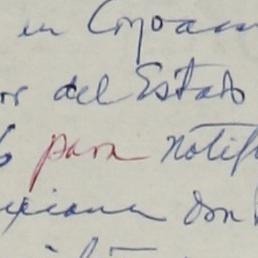 en Compa
or del Estado
para notif
xicana don